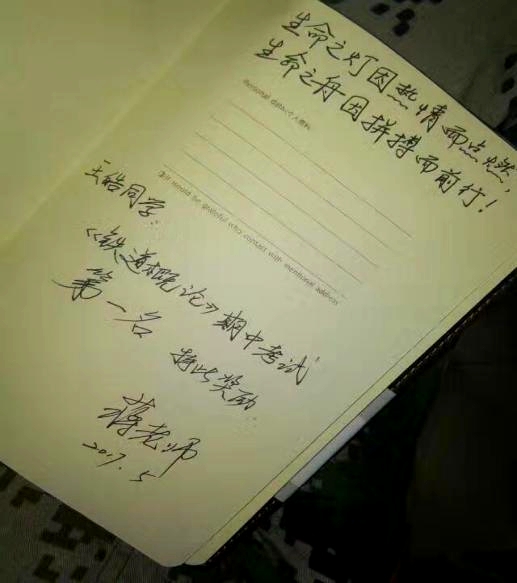 生命之灯因热情而点燃,
生命之舟因拼搏而前行!
Personal data/个人资料
王皓同学:
I should be grateful who contact with mentional address
《铁道概论》期中考试
第一名 特此奖励
蒋老师
2017.5